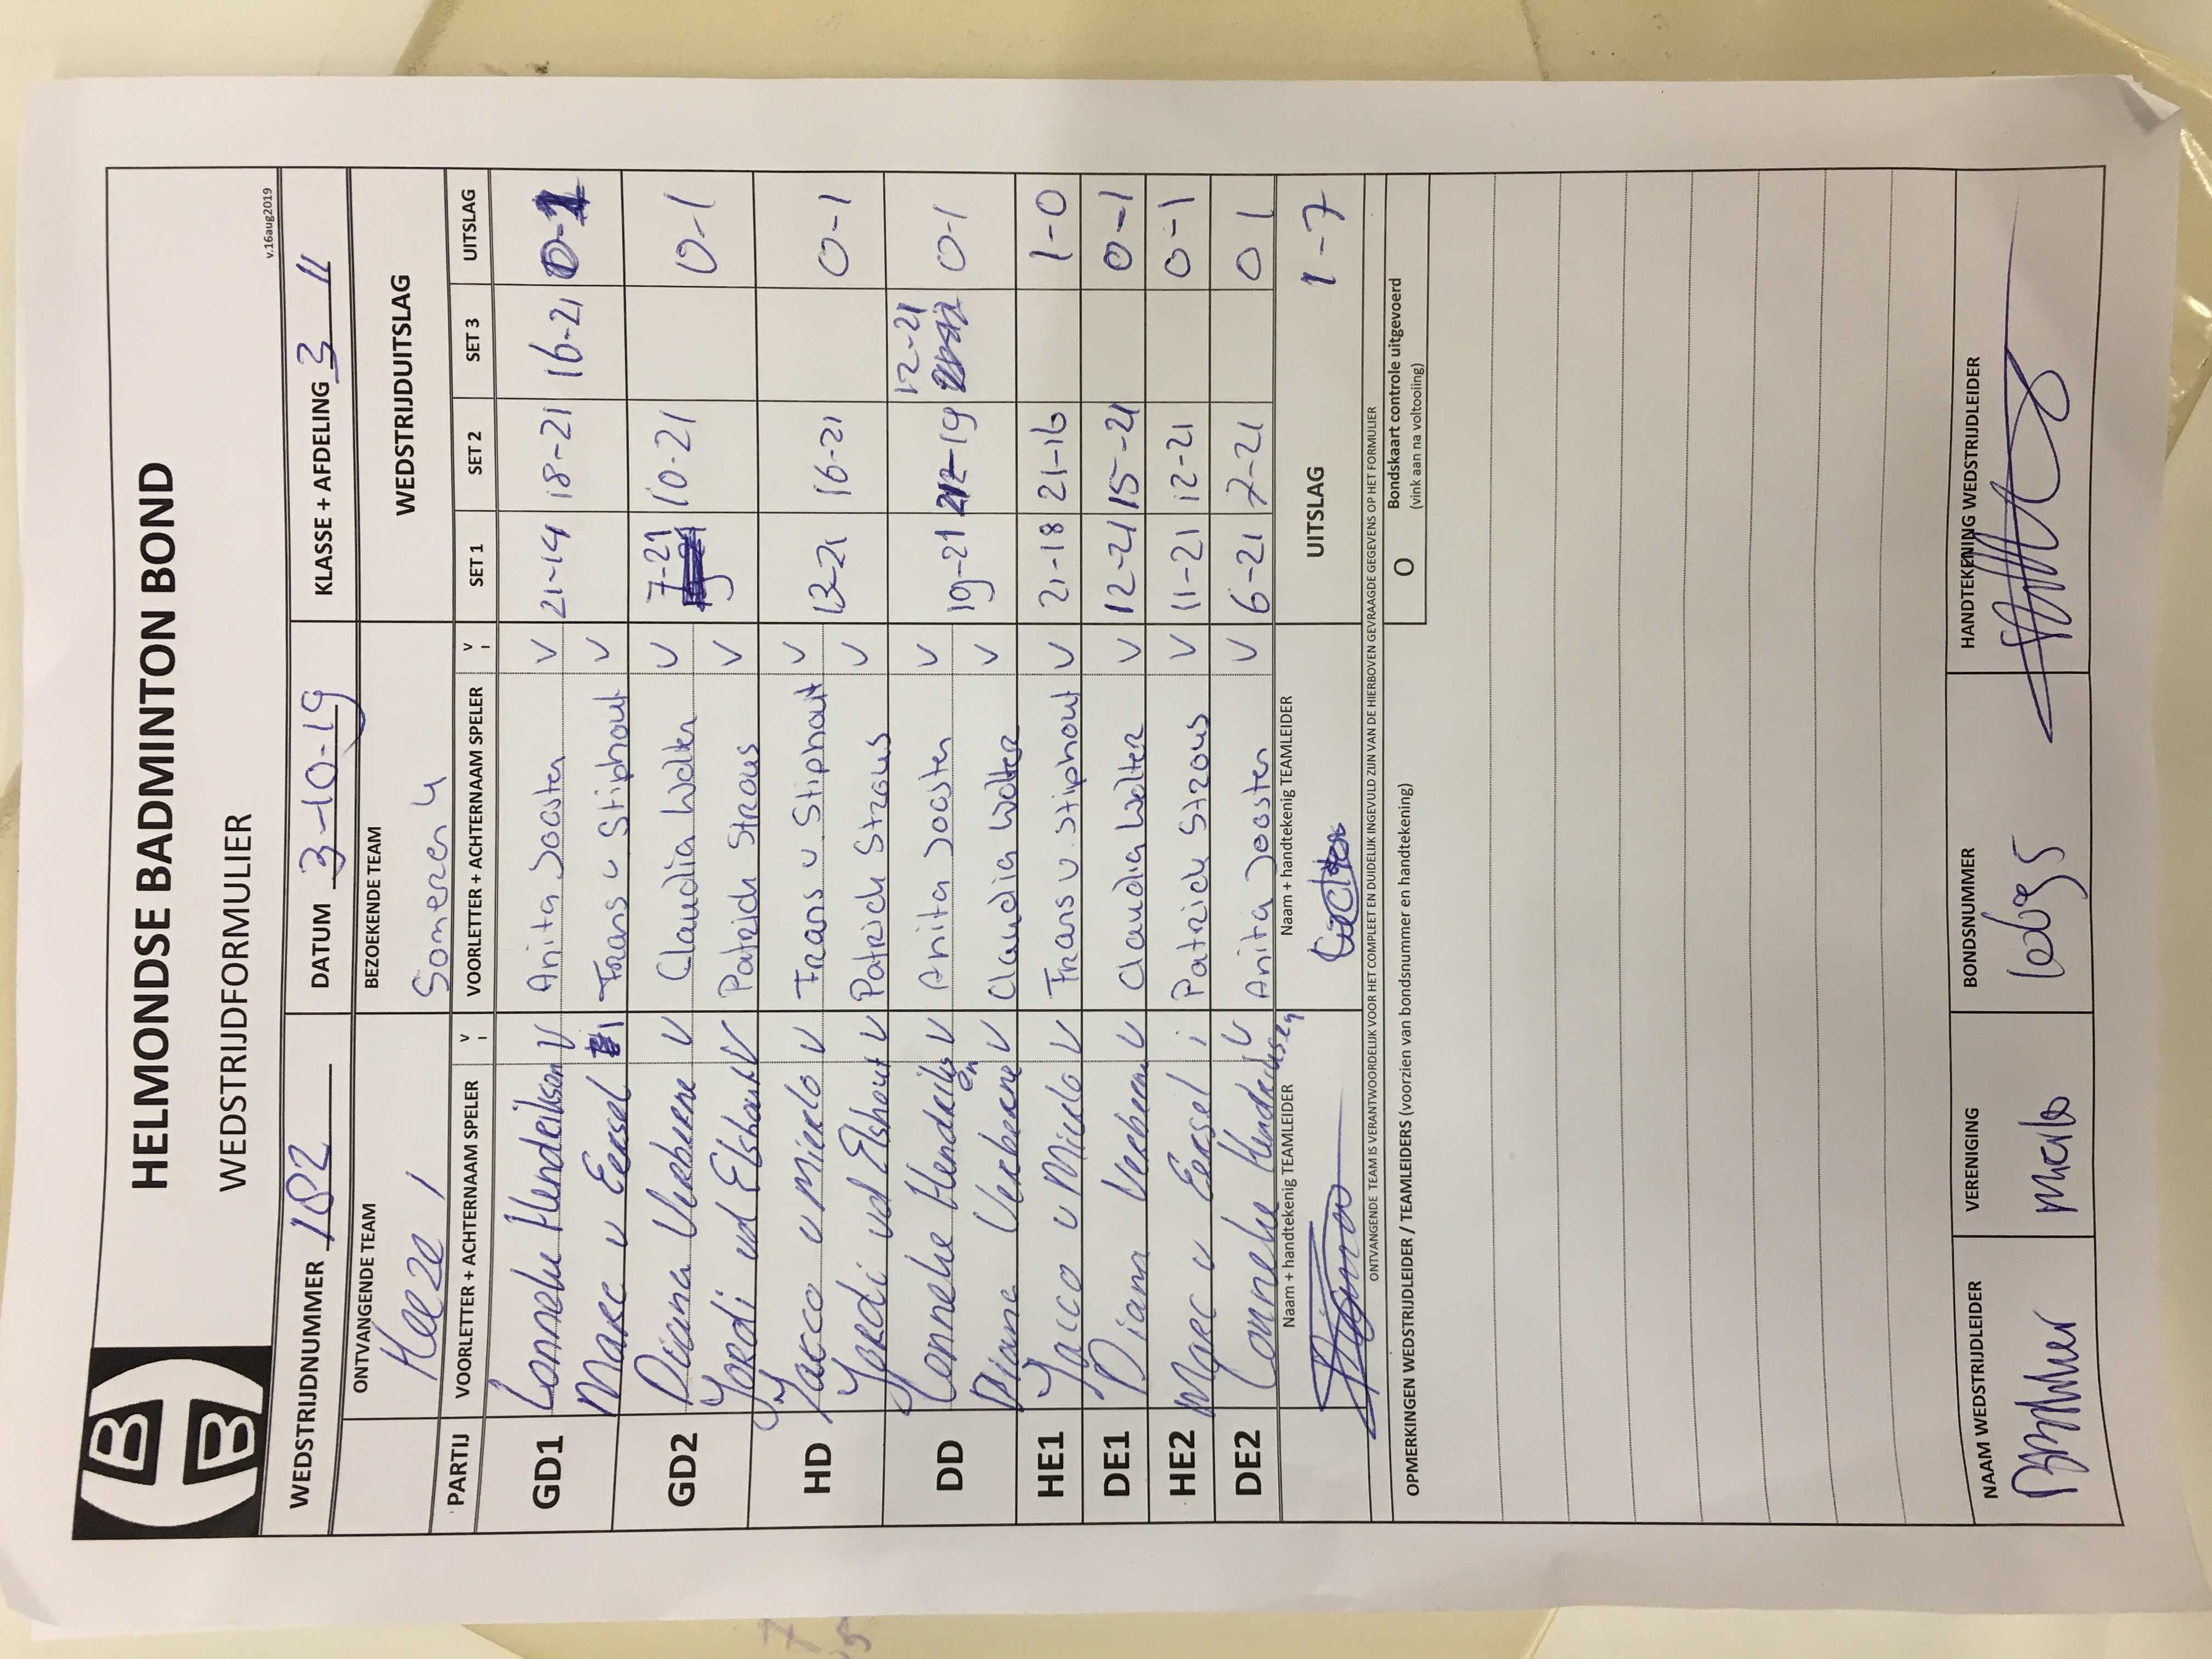 HELMONDSE BADMINTON BOND
WEDSTRIJDFORMULIER
v.16aug2019
WEDSTRIJDNUMMER 182 DATUM 3-10-19 KLASSE + AFDELING 3 11
ONTVANGENDE TEAM BEZOEKENDE TEAM WEDSTRIJDUITSLAG
Heeze 1 Someren 4
PARTIJ VOORLETTER + ACHTERNAAM SPELER V I VOORLETTER + ACHTERNAAM SPELER V I SET 1 SET 2 SET 3 UITSLAG
GD1 Lonneke Hendrikson V Anita Joosten V 21-14 18-21 16-21 0-1
Marc v Eersel I Frans v Stiphout V
GD2 Diana Verberne V Claudia Wolter V 7-21 10-21 0-1
Yordi vd Elshout V Patrick Straus V
HD Jacco v Mierlo V Frans v. Stiphout V 13-21 16-21 0-1
Yordi vd Elshout V Patrick Straus V
DD Lonneke Hendriksen V Anita Joosten V 19-21 21-19 12-21 0-1
Diana Verberne V Claudia Wolter V
HE1 Jacco v Mierlo V Frans v. Stiphout V 21-18 21-16 1-0
DE1 Diana Verberne V Claudia Wolter V 12-21 15-21 0-1
HE2 Marc v Eersel i Patrick Straus V 11-21 12-21 0-1
DE2 Lonneke Hendriksen V Anita Joosten V 6-21 7-21 0 1
Naam + handtekenig TEAMLEIDER Naam + handtekenig TEAMLEIDER UITSLAG 1-7
ONTVANGENDE TEAM IS VERANTWOORDELIJK VOOR HET COMPLEET EN DUIDELIJK INGEVULD ZIJN VAN DE HIERBOVEN GEVRAAGDE GEGEVENS OP HET FORMULIER
OPMERKINGEN WEDSTRIJDLEIDER / TEAMLEIDERS (voorzien van bondsnummer en handtekening) O Bondskaart controle uitgevoerd
(vink aan na voltooiing)
NAAM WEDSTRIJDLEIDER VERENIGING BONDSNUMMER HANDTEKENING WEDSTRIJDLEIDER